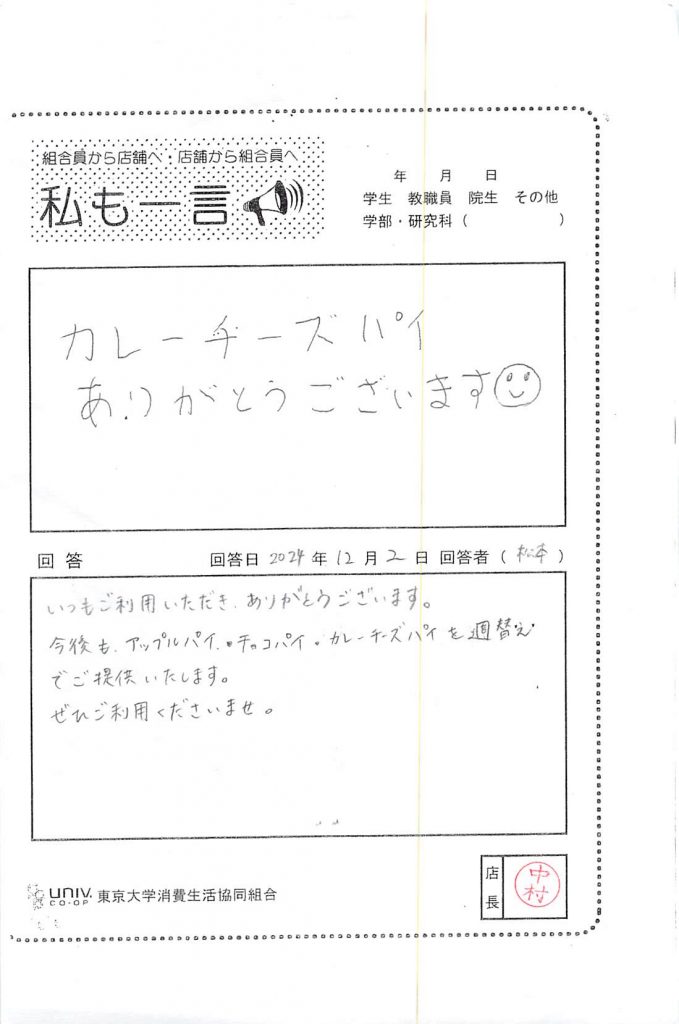 組合員から店舗へ・店舗から組合員へ
私も一言
年 月 日
学生 教職員 院生 その他
学部・研究科 ( )
カレーチーズパイ
ありがとうございます
回答 回答日 2024 年 12 月 2 日 回答者 ( 松本 )
いつもご利用いただき、ありがとうございます。
今後も、アップルパイ・チョコパイ・カレーチーズパイを週替え
でご提供いたします。
ぜひご利用くださいませ。
UNIV. CO-OP 東京大学消費生活協同組合
店長 中村